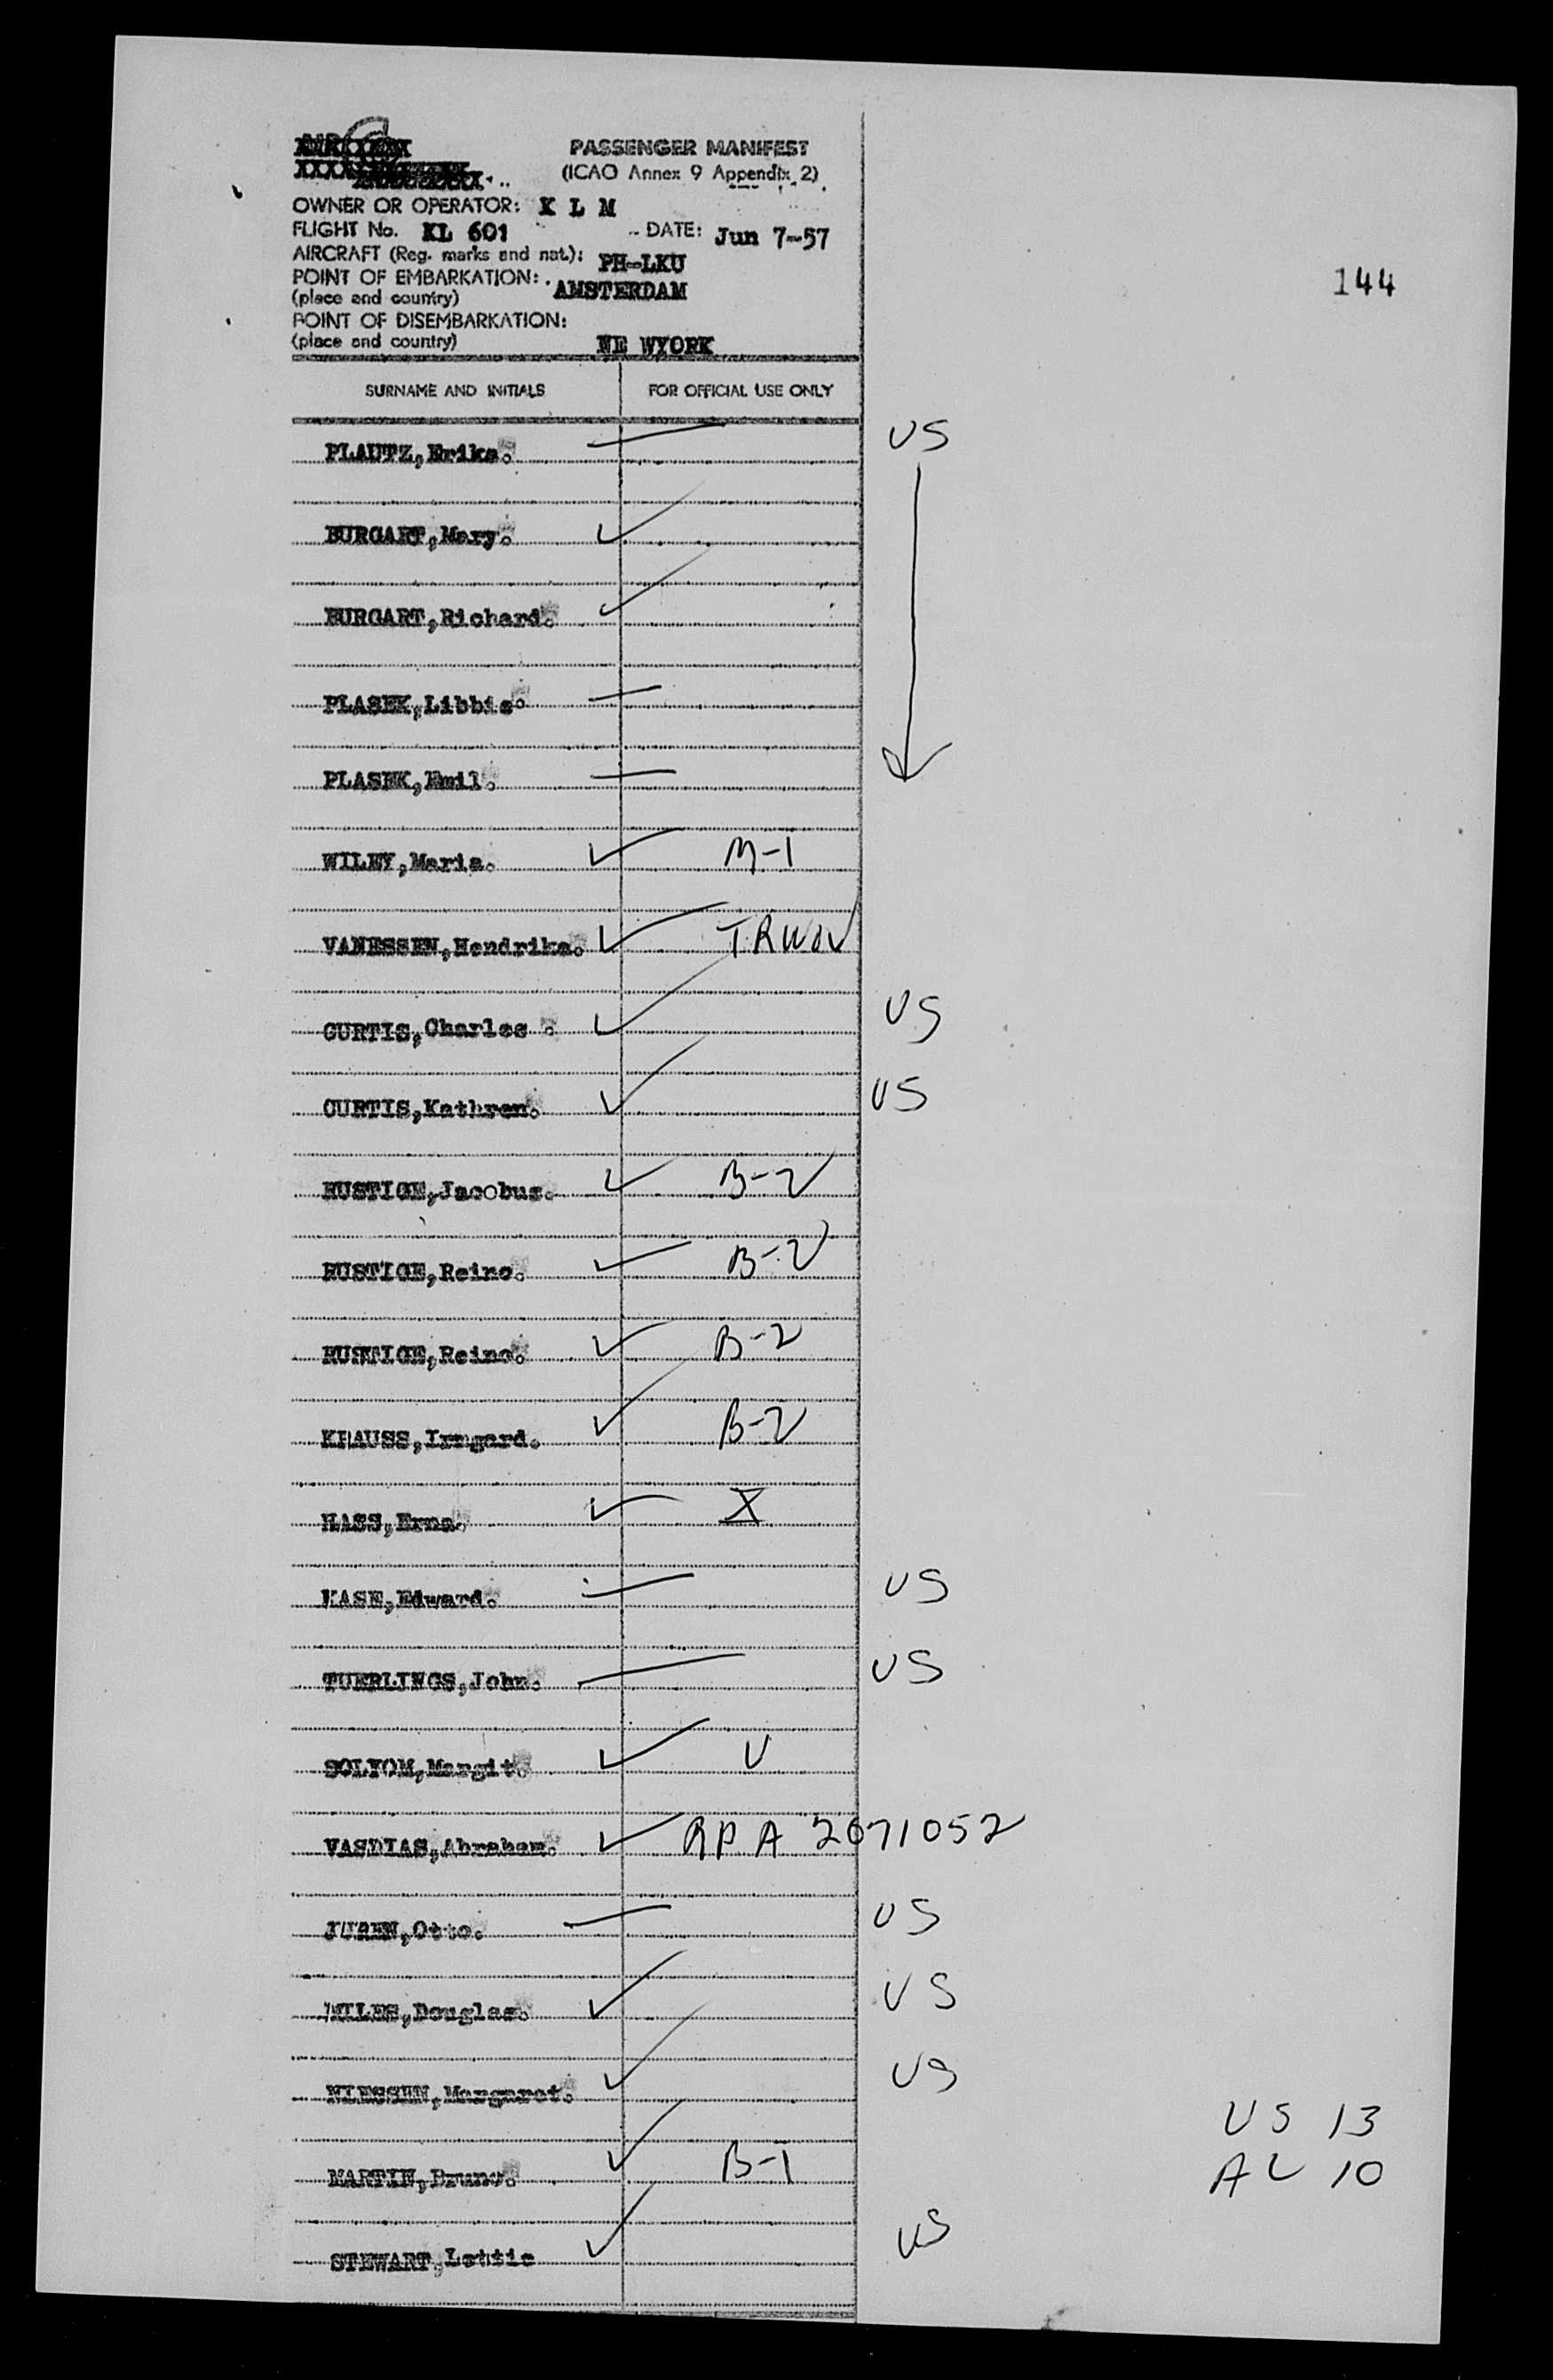 PASSENGER MANIFEST
(ICAO Annex 9 Appendix 2)
OWNER OR OPERATOR: K L M
FLIGHT No. KL 601 DATE: Jun 7-57
AIRCRAFT (Reg. marks and nat.): PH-LKU
POINT OF EMBARKATION: AMSTERDAM
(place and country)
144
POINT OF DISEMBARKATION:
(place and country) NE WYORK
SURNAME AND INITIALS FOR OFFICIAL USE ONLY
PLAUTZ,Erika. US
BURGART,Mary.
BURGART,Richard.
PLASEK,Libbie
PLASEK,Emil.
WILEY,Maria. M-1
VANESSEN,Hendrika. TRWOV
CURTIS,Charles . US
CURTIS,Kathren. US
RUSTIGE,Jacobus. B-2
RUSTIGE,Reino. B-2
RUSTIGE,Reino. B-2
KRAUSS,Irmgard. B-2
HASS,Erna. X
KASE,Edward. US
TUERLINGS,John. US
SOLYOM,Margit. V
VASDIAS,Abraham. RPA 2671052
JUREN,Otto. US
MILES,Douglas. US
NIESSEN,Margaret. US
US 13
MARTIN,Bruno. B-1 AL 10
STEWART,Lottie US